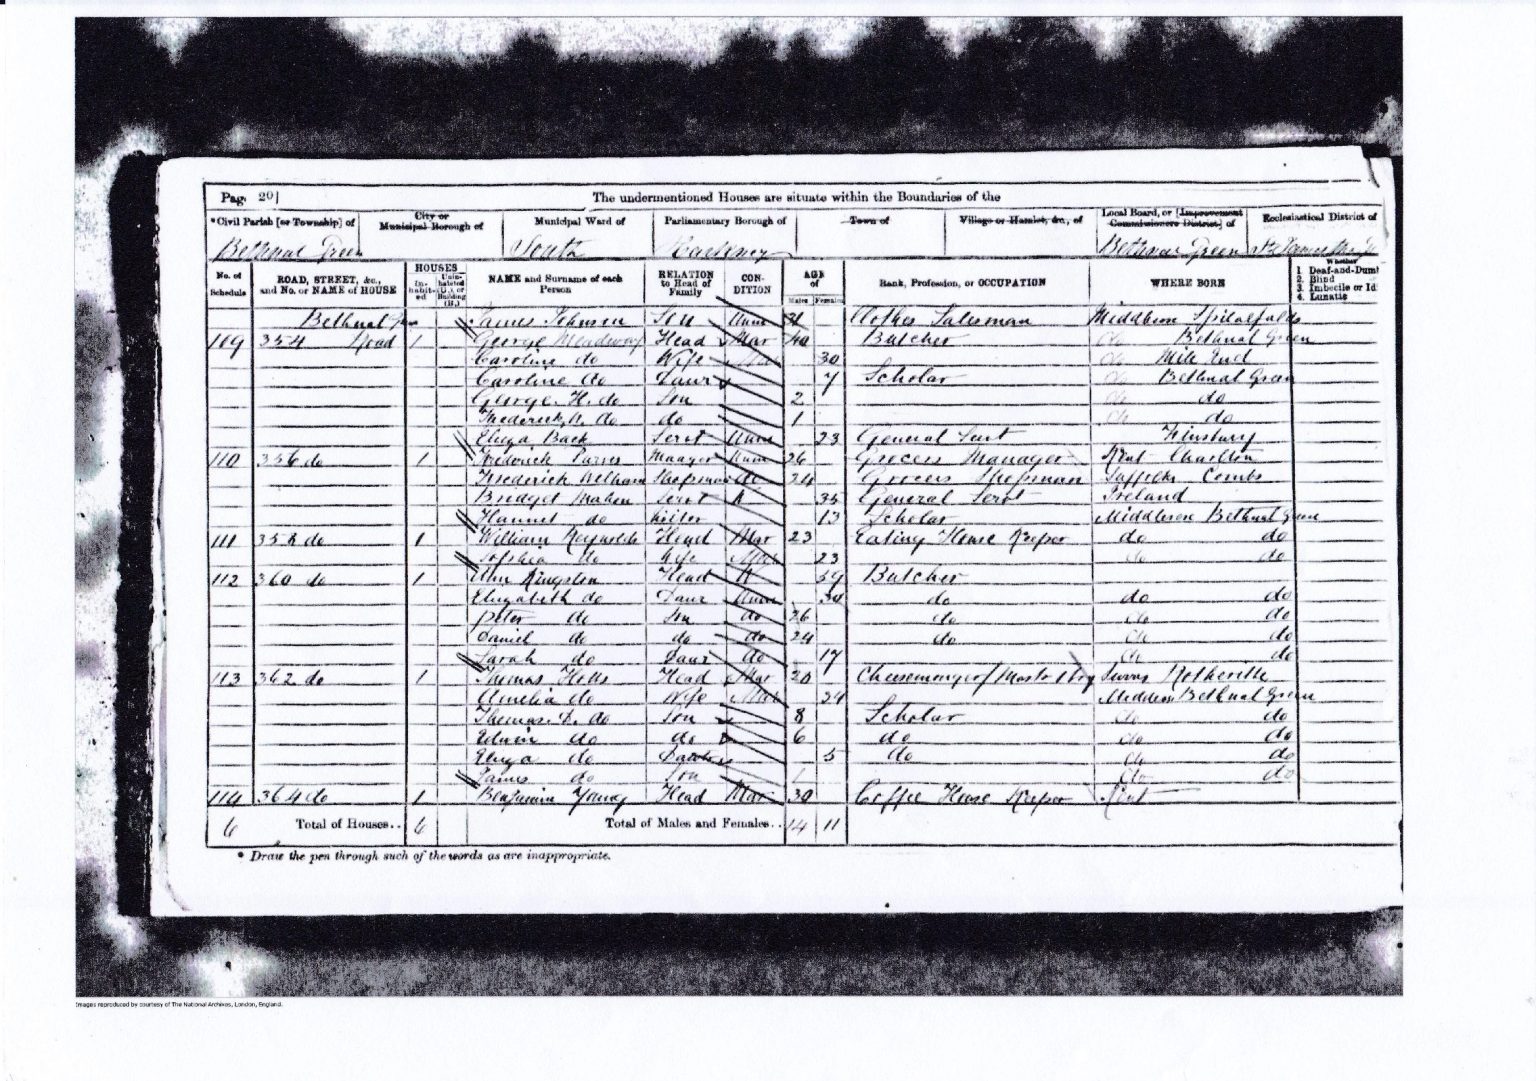 Page 20] The undermentioned Houses are situate within the Boundaries of the
*Civil Parish [or Township] of City or Municipal Borough of Municipal Ward of Parliamentary Borough of Town of Village or Hamlet, &c., of Local Board, or [Improvement Commissioners District] of Ecclesiastical District of
Bethnal Green South Hackney Bethnal Green St James the
No. of Schedule ROAD, STREET, &c., and No. or NAME of HOUSE HOUSES Inhabited Uninhabited (U.), or Building (B.) NAME and Surname of each Person RELATION to Head of Family CONDITION AGE of Males Females Rank, Profession, or OCCUPATION WHERE BORN Whether 1. Deaf-and-Dumb 2. Blind 3. Imbecile or Id 4. Lunatic
Bethnal Grn James Johnson Son Unm 31 Clothes Salesman Middlesex Spitalfields
109 354 Road 1 George Meadway Head Mar 40 Butcher do Bethnal Green
Caroline do Wife Mar 30 do Mile End
Caroline do Daur 7 Scholar do Bethnal Green
George H. do Son 2 do do
Frederick do do 1 do do
Eliza Back Servt Unm 23 General Servt Finsbury
110 356 do 1 Frederick Manager Unm 26 Grocers Manager Kent Charlton
Frederick Shopman do 24 Grocers Shopman Suffolk Combs
Bridget Mahon Servt 35 General Servt Ireland
do Visitor 13 Scholar Middlesex Bethnal Green
111 358 do 1 William Reynolds Head Mar 23 Eating House Keeper do do
Sophia do Wife Mar 23 do do
112 360 do 1 Ann Kingston Head W 59 Butcher
Elizabeth do Daur Unm do do do
Peter do Son do 26 do do do
Daniel do do do 24 do do do
Sarah do Daur do 17 do do
113 362 do 1 Thomas Head Mar Cheesemonger Rotherhithe
Amelia do Wife Mar Middlesex Bethnal Green
Thomas do Son 8 Scholar do do
Edwin do do 6 do do do
Eliza do Daur 5 do do do
James do Son 1 do do
114 364 do 1 Benjamin Young Head Mar 30 Coffee House Keeper Kent
6 Total of Houses.. 6 Total of Males and Females.. 14 11
* Draw the pen through such of the words as are inappropriate.
Images reproduced by courtesy of The National Archives, London, England.